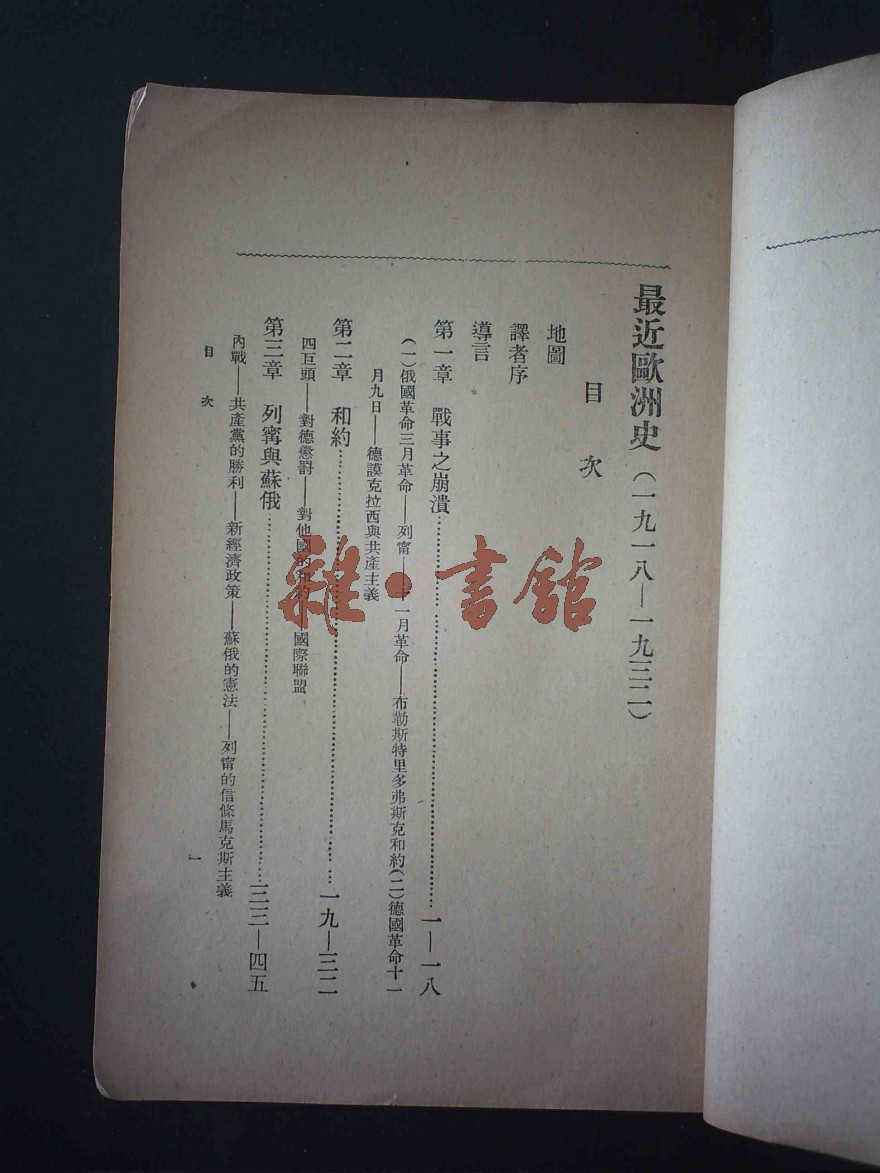 最近歐洲史（一九一八—一九三二）
目次
地圖
譯者序
導言
第一章 戰事之崩潰……一—一八
（一）俄國革命三月革命——列甯——十一月革命——布勒斯特里多弗斯克和約（二）德國革命十一
月九日——德謨克拉西與共產主義
第二章 和約……一九—三二
四巨頭——對德懲罰——對他國的和約——國際聯盟
第三章 列甯與蘇俄……三三—四五
內戰——共產黨的勝利——新經濟政策——蘇俄的憲法——列甯的信條馬克斯主義
目次
一
雜·書館